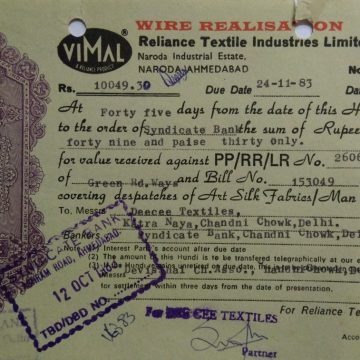 WIRE REALISATION
VIMAL
A RELIANCE PRODUCT
Reliance Textile Industries Limite
Naroda Industrial Estate,
NARODA/AHMEDABAD No
Rs. 10049.30 Due Date 24-11-83 Date
At Forty five days from the date of this H
to the order of Syndicate Bank the sum of Rupe
forty nine and paise thirty Only.
for value received against PP/RR/LR No. 2606
of Green Rd. Ways and Bill No. 153049
covering despatches of Art Silk Fabrics/Man
To Messrs Deecee Textiles,
tra Naya, Chandni Chowk, Delhi.
Bankers Syndicate Bank, Chandni Chowk, Delh
Note (1) Interest from account after due date
(2) The amount of this Hundi is to be transferred telegraphically at our
for settlement within three days from the date of presentation.
12 OCT 1983
TBD/DBD NO.
For DEE CEE TEXTILES
For Reliance Te
Partner